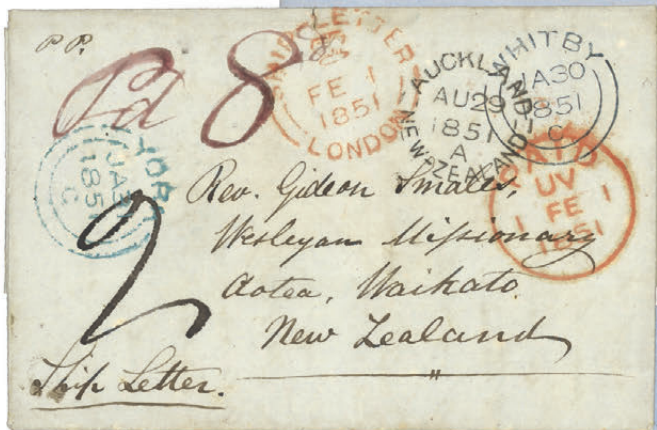 P.P.
Pd 8
SHIP LETTER
FE 1
1851
LONDON
AUCKLAND
AU 29
1851
A
NEW-ZEALAND
WHITBY
JA 30
1851
C
YORK
JA 31
1851
C
PAID
UV
1 FE 1
1851
2
Rev. Gideon Smales,
Wesleyan Missionary
Aotea, Waikato
New Zealand
Ship Letter.